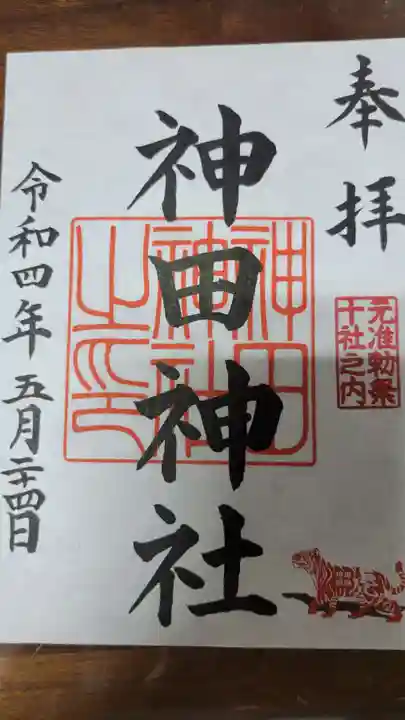 奉拝
元准勅祭
十社之内
神田神社
神田
神社
之印
令和四年五月二十四日